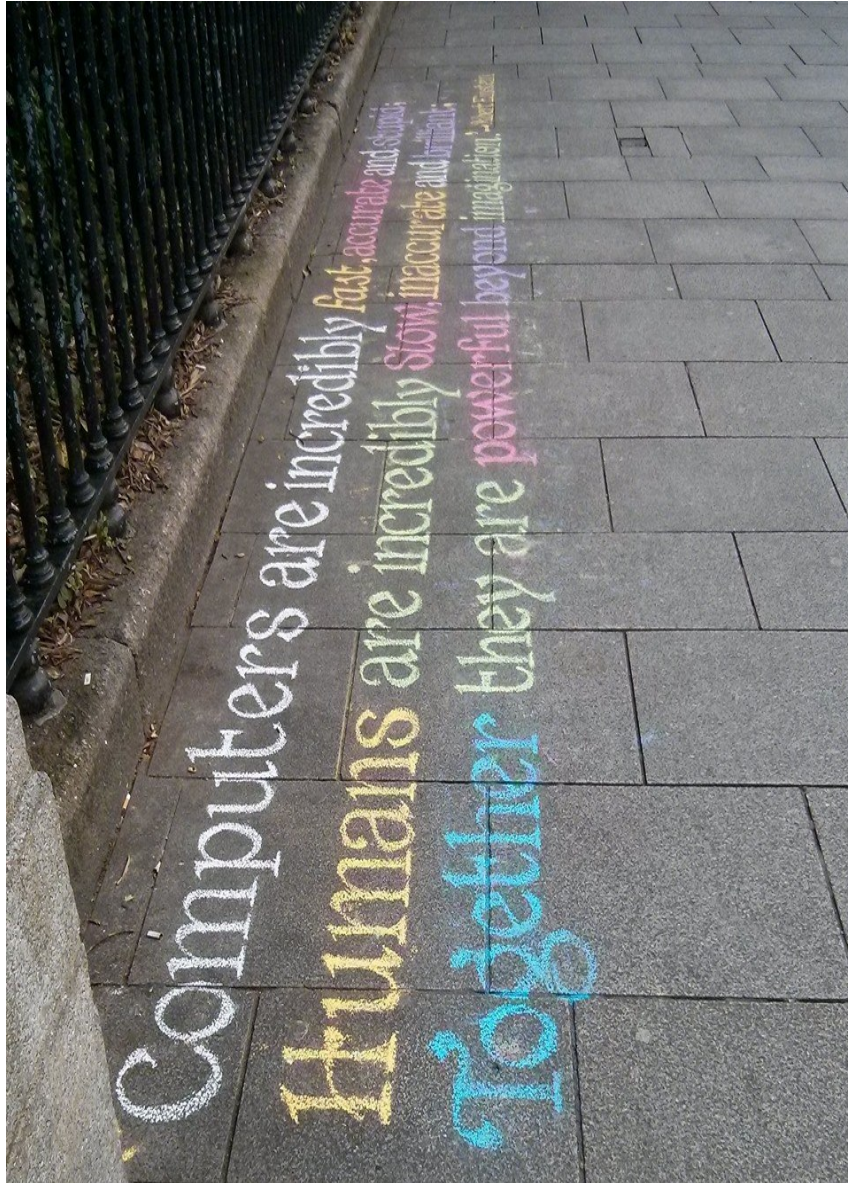 Computers are incredibly fast, accurate and stupid;
Humans are incredibly slow, inaccurate and brilliant;
Together they are powerful beyond imagination." Albert Einstein